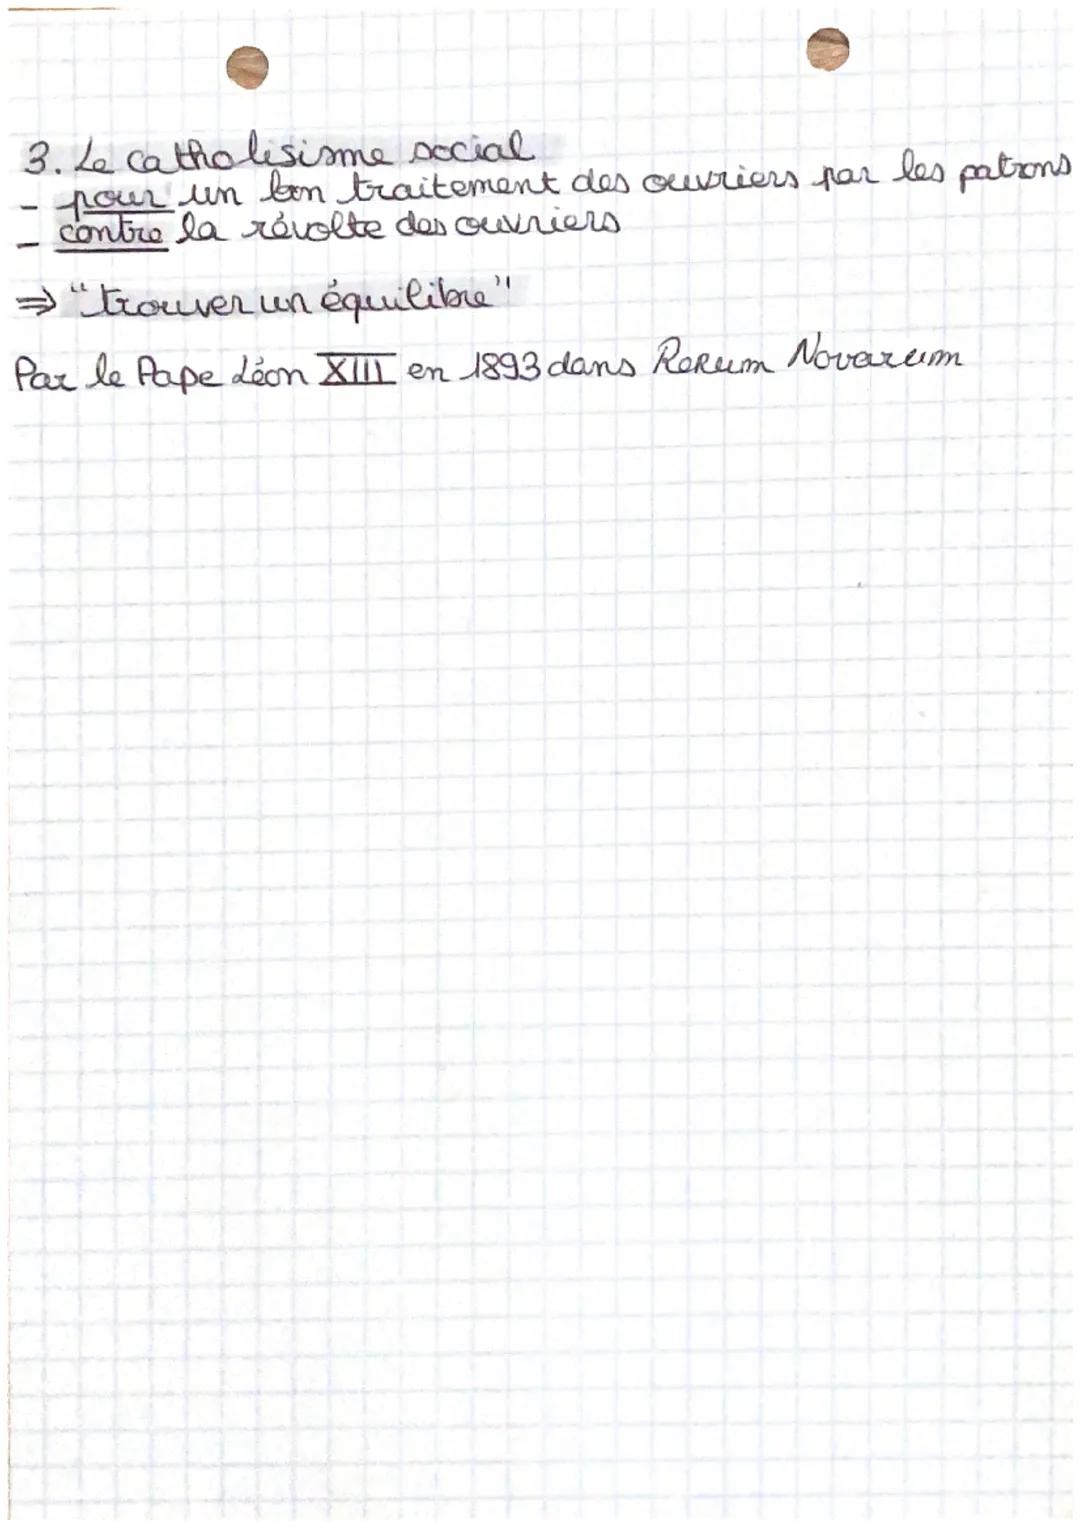 3. Le catholisisme social
- pour un bon traitement des ouvriers par les patrons
- contre la révolte des ouvriers
⇒ "trouver un équilibre"
Par le Pape Léon XIII en 1893 dans Rerum Novarum